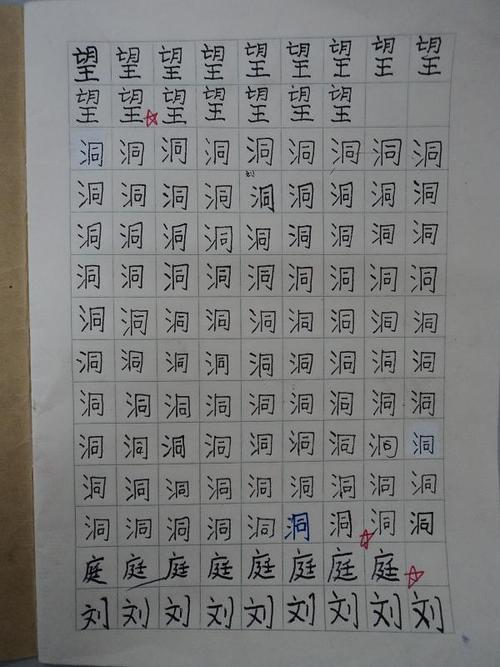 望望望望望望望望望
望望望望望望望
洞洞洞洞洞洞洞洞洞
洞洞洞洞洞洞洞洞洞
洞洞洞洞洞洞洞洞洞
洞洞洞洞洞洞洞洞洞
洞洞洞洞洞洞洞洞洞
洞洞洞洞洞洞洞洞洞
洞洞洞洞洞洞洞洞洞
洞洞洞洞洞洞洞洞洞
洞洞洞洞洞洞洞洞洞
洞洞洞洞洞洞洞洞洞
庭庭庭庭庭庭庭庭
刘刘刘刘刘刘刘刘刘